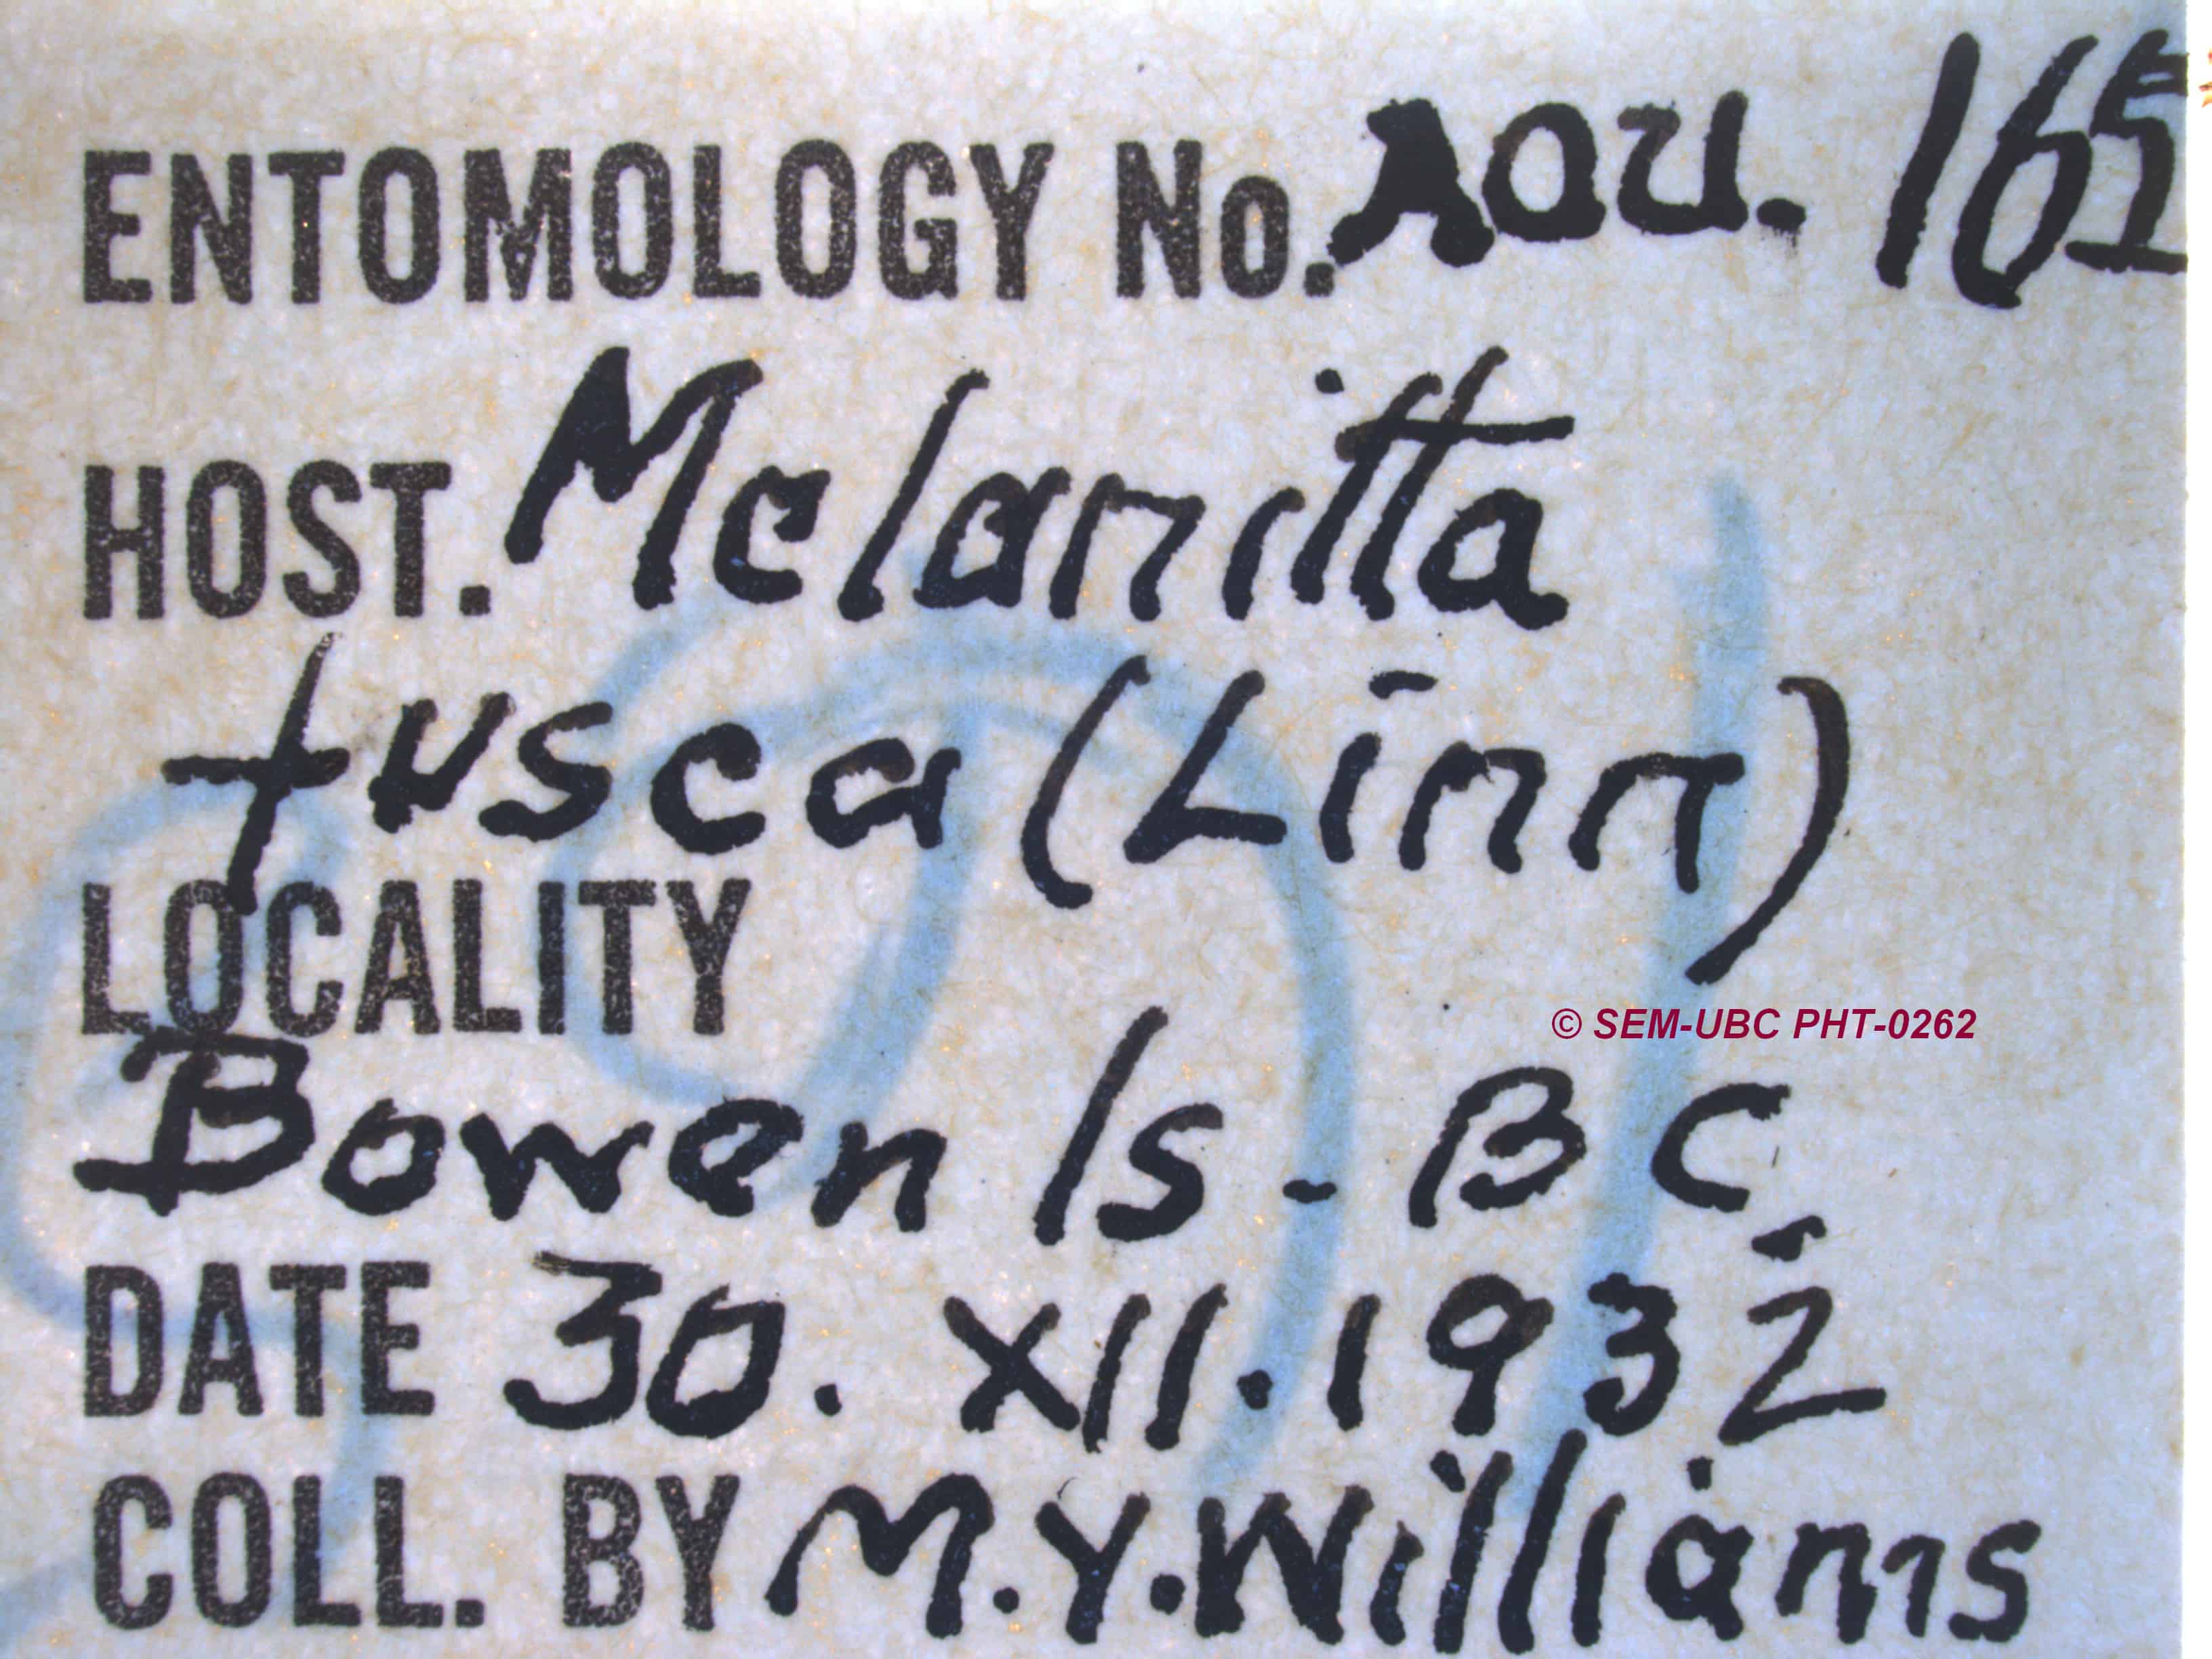 ENTOMOLOGY No. AOU. 165
HOST. Melanitta
fusca (Linn)
LOCALITY
© SEM-UBC PHT-0262
Bowen Is - BC.
DATE 30. XII. 1932
COLL. BY M.Y. Williams